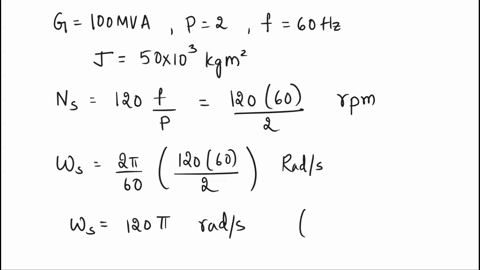 G = 100MVA , P = 2 , f = 60 Hz
J = 50x10³ kgm²
Ns = 120 f/P = 120(60)/2 rpm
Ws = 2π/60 (120(60)/2) Rad/s
Ws = 120π rad/s (